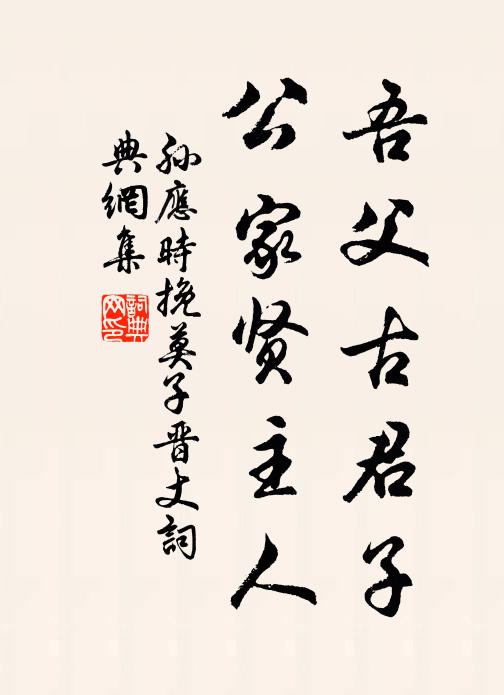 吾父古君子
公家贤主人
孙應時挽莫子晋丈詞
典網集
詞典
网印